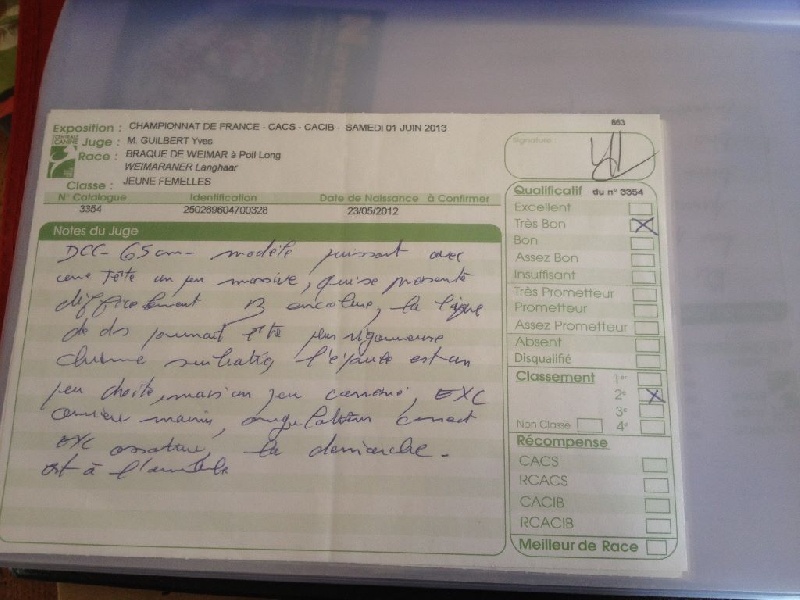 863
Exposition : CHAMPIONNAT DE FRANCE - CACS - CACIB - SAMEDI 01 JUIN 2013
Juge : M. GUILBERT Yves
Race : BRAQUE DE WEIMAR à Poil Long
WEIMARANER Langhaar
Classe : JEUNE FEMELLES
N° Catalogue Identification Date de Naissance à Confirmer
3354 250269604700328 23/05/2012
Notes du Juge
65 cm - modèle puissant avec
une tête un peu massive, qui se présente
B encolure, la ligne
de dos pourrait être plus rigoureuse
l'épaule est un
peu droite, EXC
angulation correct
EXC ossature, la démarche
est à l'amble
Signature
Qualificatif du n° 3354
Excellent
Très Bon
Bon
Assez Bon
Insuffisant
Très Prometteur
Prometteur
Assez Prometteur
Absent
Disqualifié
Classement 1er
2e
3e
Non Classé 4e
Récompense
CACS
RCACS
CACIB
RCACIB
Meilleur de Race